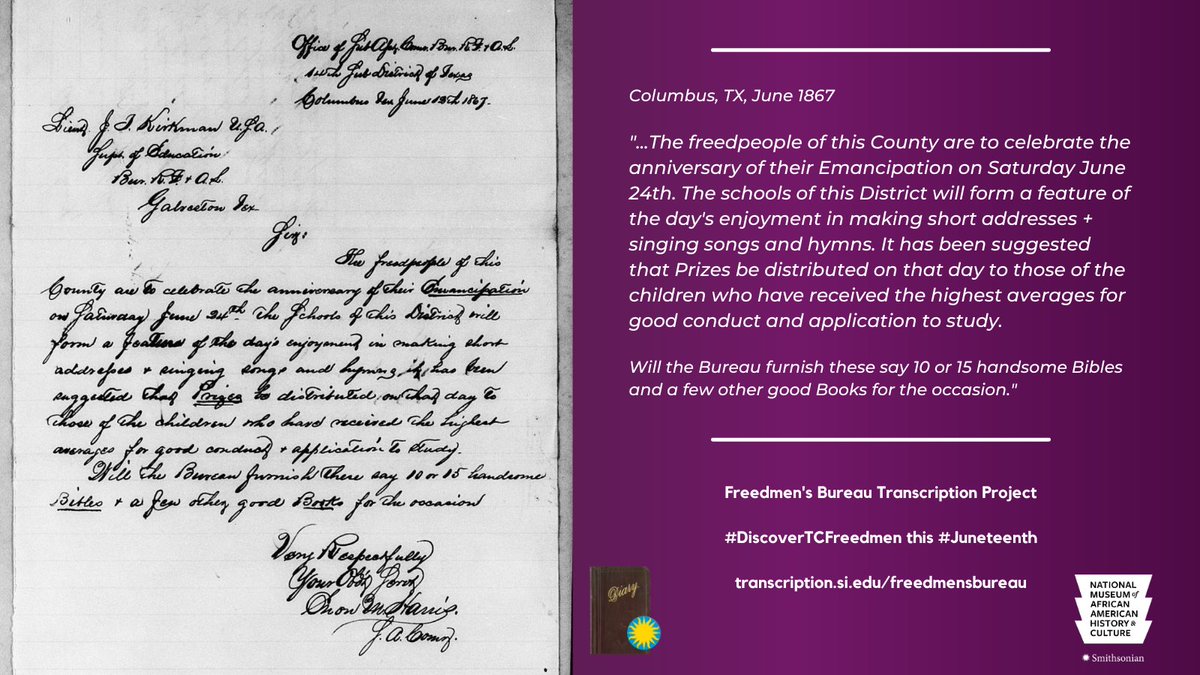 Office of Sub Asst. Comr. Bur. R. F. & A. L.
14th Sub District of Texas
Columbus Tex June 13th 1867.
Lieut. J. T. Kirkman U.S.A.
Supt. of Education
Bur. R. F. & A. L.
Galveston Tex
Sir:
The freedpeople of this
County are to celebrate the anniversary of their Emancipation
on Saturday June 24th. The Schools of this District will
form a feature of the day's enjoyment in making short
addresses + singing songs and hymns, it has been
suggested that Prizes be distributed on that day to
those of the children who have received the highest
averages for good conduct + application to study.
Will the Bureau furnish these say 10 or 15 handsome
Bibles + a few other good Books for the occasion
Very Respectfully
Your Obt. Servt
Enon M. Harris.
S. A. Comr.
Columbus, TX, June 1867
"...The freedpeople of this County are to celebrate the
anniversary of their Emancipation on Saturday June
24th. The schools of this District will form a feature of
the day's enjoyment in making short addresses +
singing songs and hymns. It has been suggested
that Prizes be distributed on that day to those of the
children who have received the highest averages for
good conduct and application to study.
Will the Bureau furnish these say 10 or 15 handsome Bibles
and a few other good Books for the occasion."
Freedmen's Bureau Transcription Project
#DiscoverTCFreedmen this #Juneteenth
transcription.si.edu/freedmensbureau
Diary
NATIONAL
MUSEUM of
AFRICAN
AMERICAN
HISTORY &
CULTURE
Smithsonian